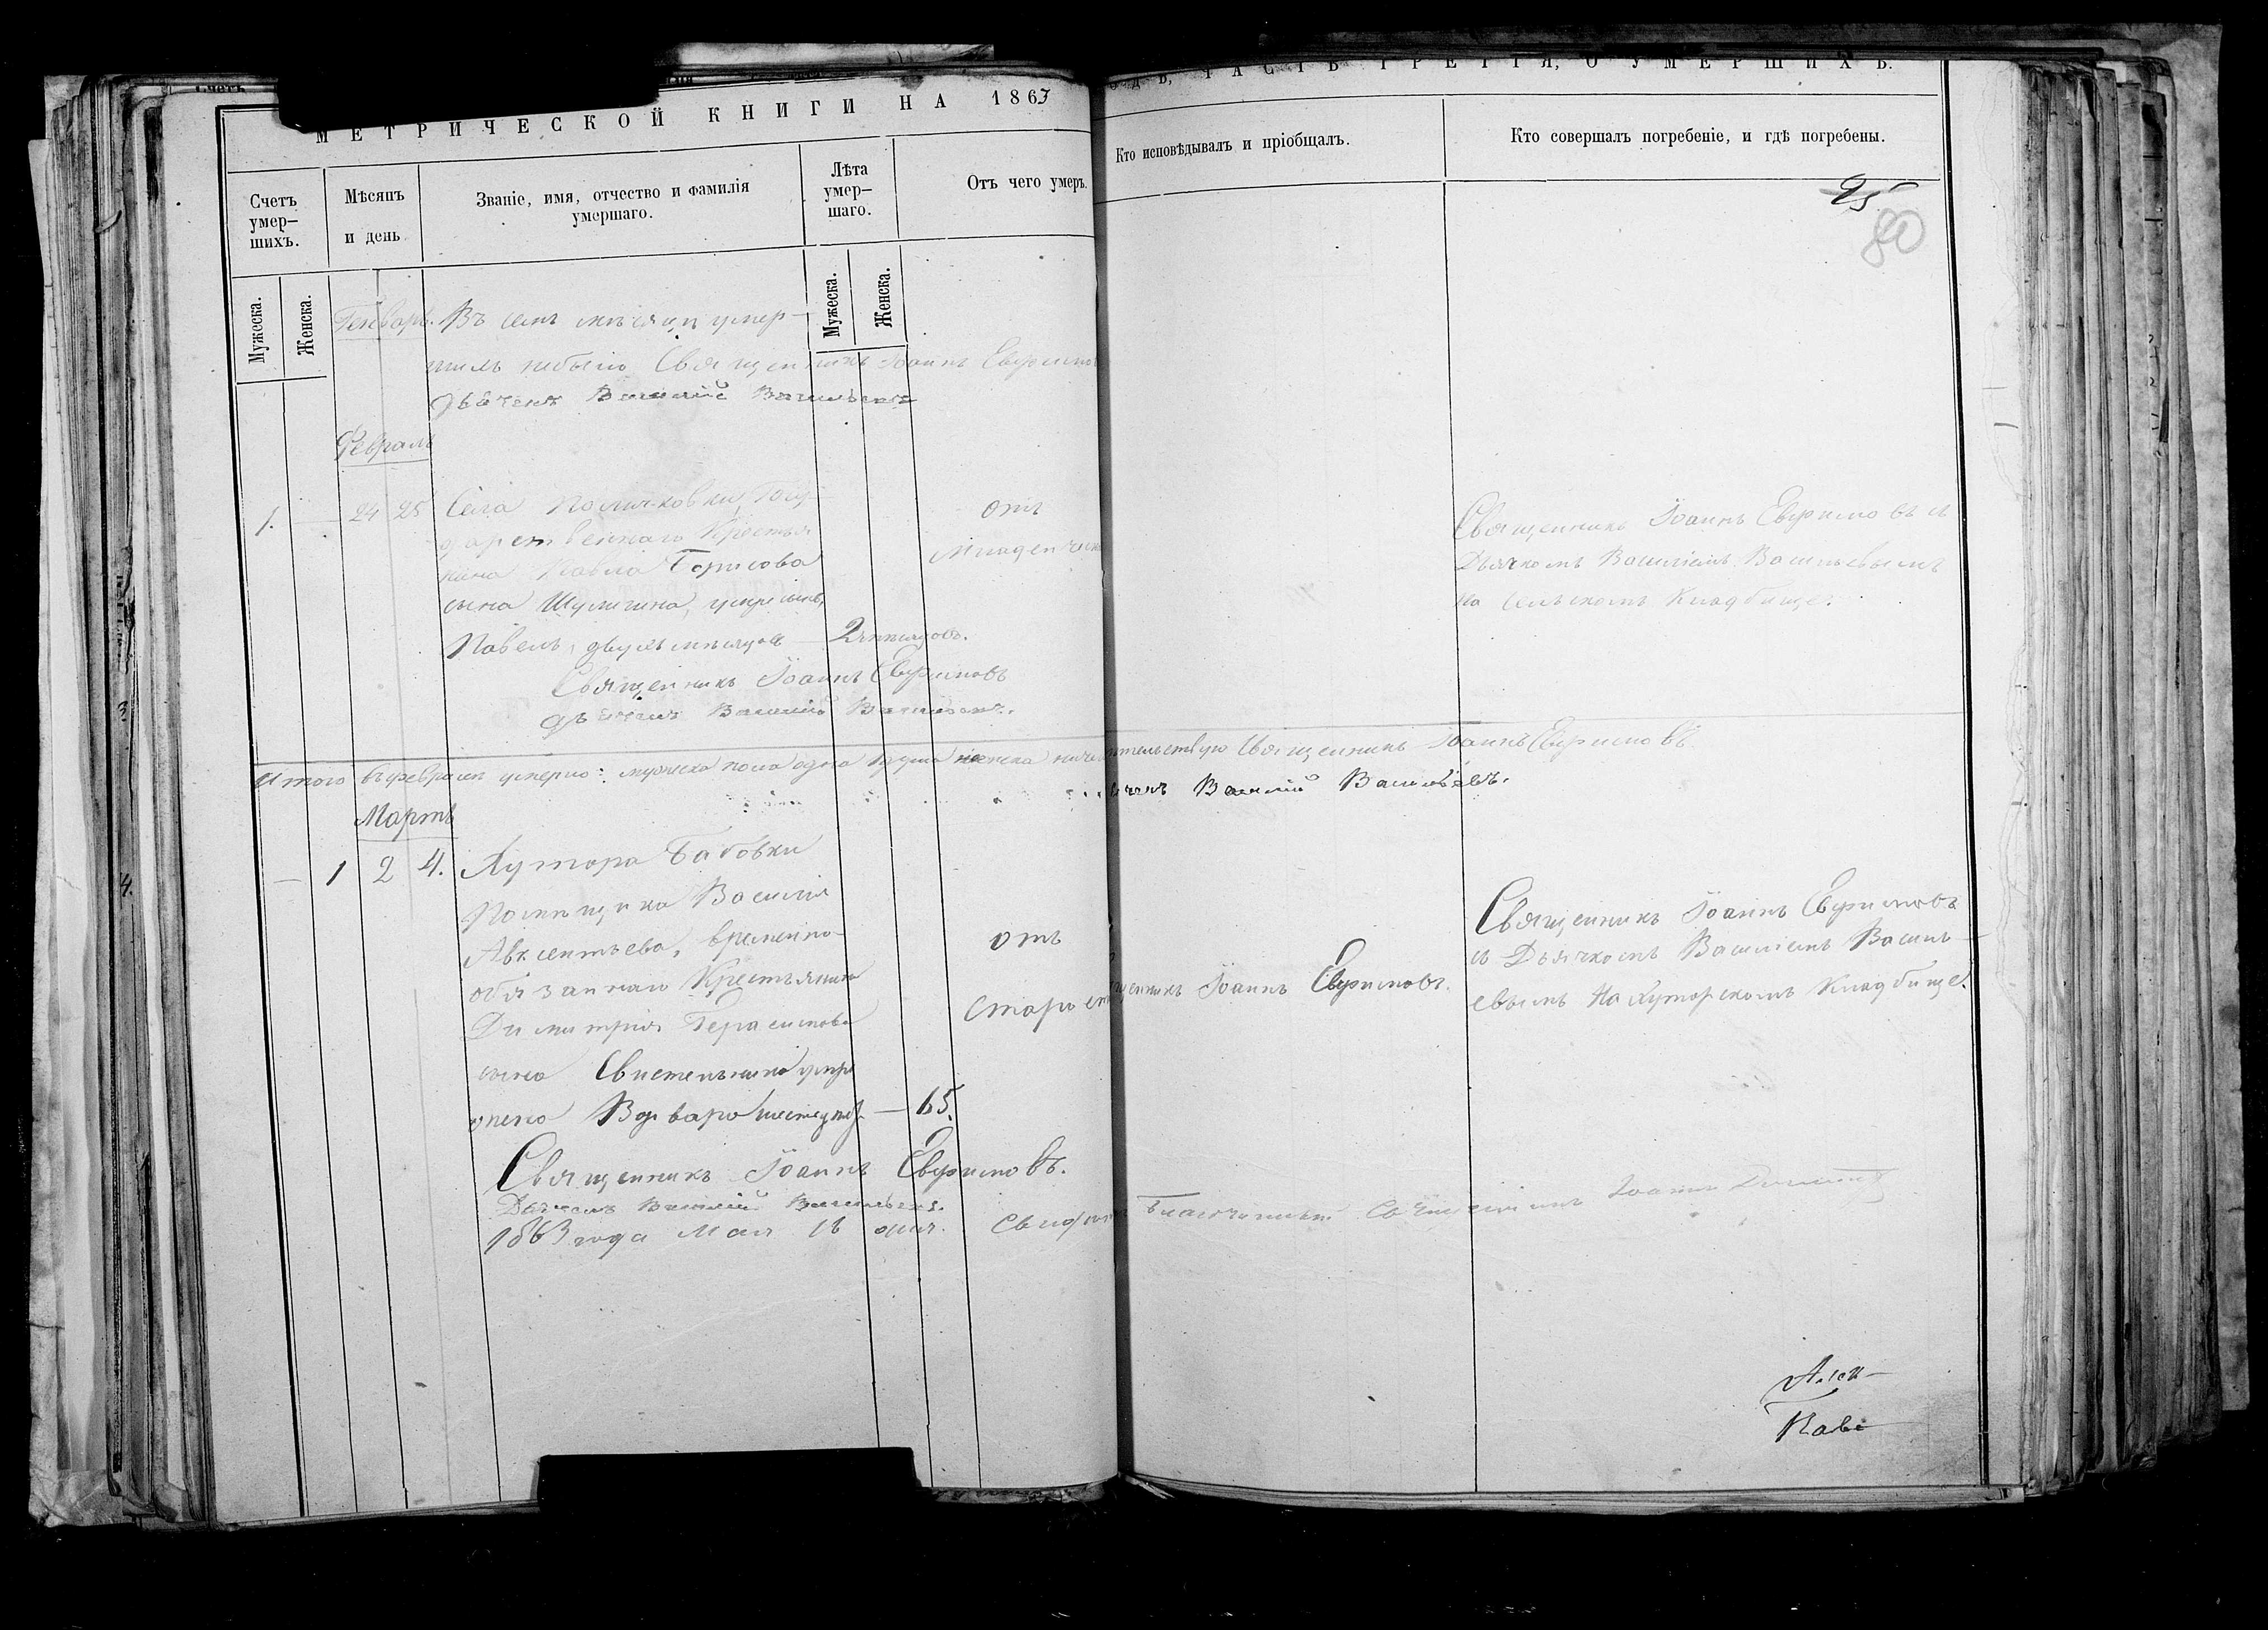 МЕТРИЧЕСКОЙ КНИГИ НА 1863
ЧАСТЬ ТРЕТІЯ, О УМЕРШИХЪ.
Счетъ умер-
шихъ.
Мужеска.
Женска.
Мѣсяцъ
и день
Званіе, имя, отчество и фамилія
умершаго.
Лѣта
умер-
шаго.
Мужеска.
Женска.
Отъ чего умеръ.
Кто исповѣдывалъ и пріобщалъ.
Кто совершалъ погребеніе, и гдѣ погребены.
25
80
Генварь. Въ семъ мѣсяцѣ умер-
шихъ небыло Священникъ Іоаннъ Евфимов
Дьячекъ Василій Васильевъ
Февраль
1. — 24 25 Села Госу-
дарственнаго Крестья
нина Павла Борисова
сына Шулигина, умре сынъ,
Павелъ, двухъ мѣсяцовъ — 2 мѣсяцовъ.
отъ
младенческ
Священникъ Іоаннъ Евфимовъ
Дьячекъ Василій Васильевъ.
Священникъ Іоаннъ Евфимовъ съ
Дьячкомъ Василіемъ Васильевымъ
на сельскомъ Кладбище.
Итого въ февралѣ умерло: мужеска пола одна душа женска Священникъ Іоаннъ Евфимовъ.
Василій Васильевъ.
Мартъ
— 1 2 4. Хутора Бабовки
Помѣщика Василія
Авксентьева, временно-
обязаннаго Крестьянина
Димитрія Герасимова
сына умре
жена Вдова — 65.
отъ
старост
Іоаннъ Евфимовъ.
Священникъ Іоаннъ Евфимовъ
съ Дьячкомъ Василіемъ Василь-
евымъ на хуторскомъ Кладбище.
Священникъ Іоаннъ Евфимовъ.
Дьячекъ Василій Васильевъ.
1863 года Мая дня. Благочинный Священникъ Іоаннъ